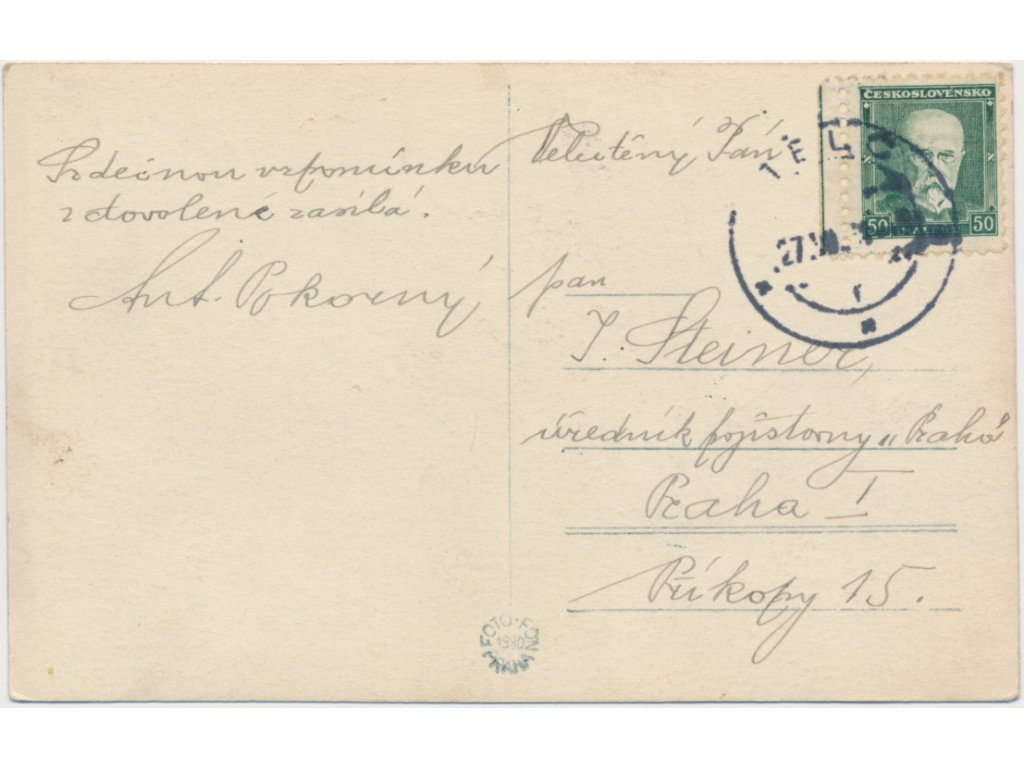 Srdečnou vzpomínku
z dovolené zasílá.
Ant. Pokorný
Velectěný Pán
pan
J. Steiner,
úředník pojišťovny „Praha"
Praha I
Příkopy 15.
ČESKOSLOVENSKO
50 50
27.VII.
FOTO-FON
1930
PRAHA